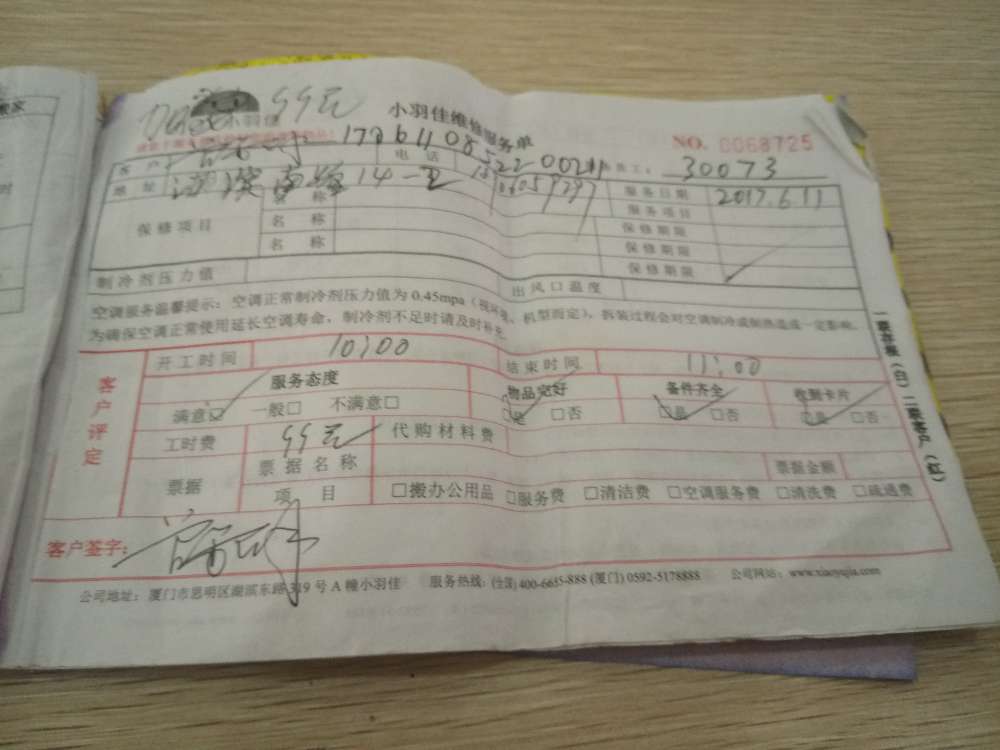 小羽佳
小羽佳维修服务单
NO. 0068725
1706110852200211
员工: 30073
客户
电话
地址
14-
服务日期 2017.6.11
服务项目
保修项目
名 称
名 称
名 称
保修期限
保修期限
保修期限
制冷剂压力值
出风口温度
空调服务温馨提示：空调正常制冷剂压力值为0.45mpa（视环境、机型而定），拆装过程会对空调制冷或制热造成一定影响。
为确保空调正常使用延长空调寿命，制冷剂不足时请及时补充
客户评定
开工时间 10:00
结束时间 11:00
服务态度
物品完好
备件齐全
收到卡片
满意☑ 一般□ 不满意□
☑是 □否
☑是 □否
☑是 □否
工时费
代购材料费
票据
票据名称
票据金额
项 目
□搬办公用品 □服务费 □清洁费 □空调服务费 □清洗费 □疏通费
客户签字：
公司地址：厦门市思明区湖滨东路319号A幢小羽佳
服务热线: (全国)400-6655-888 (厦门) 0592-5178888
公司网站：www.xiaoyujia.com
一联存根（白）二联客户（红）